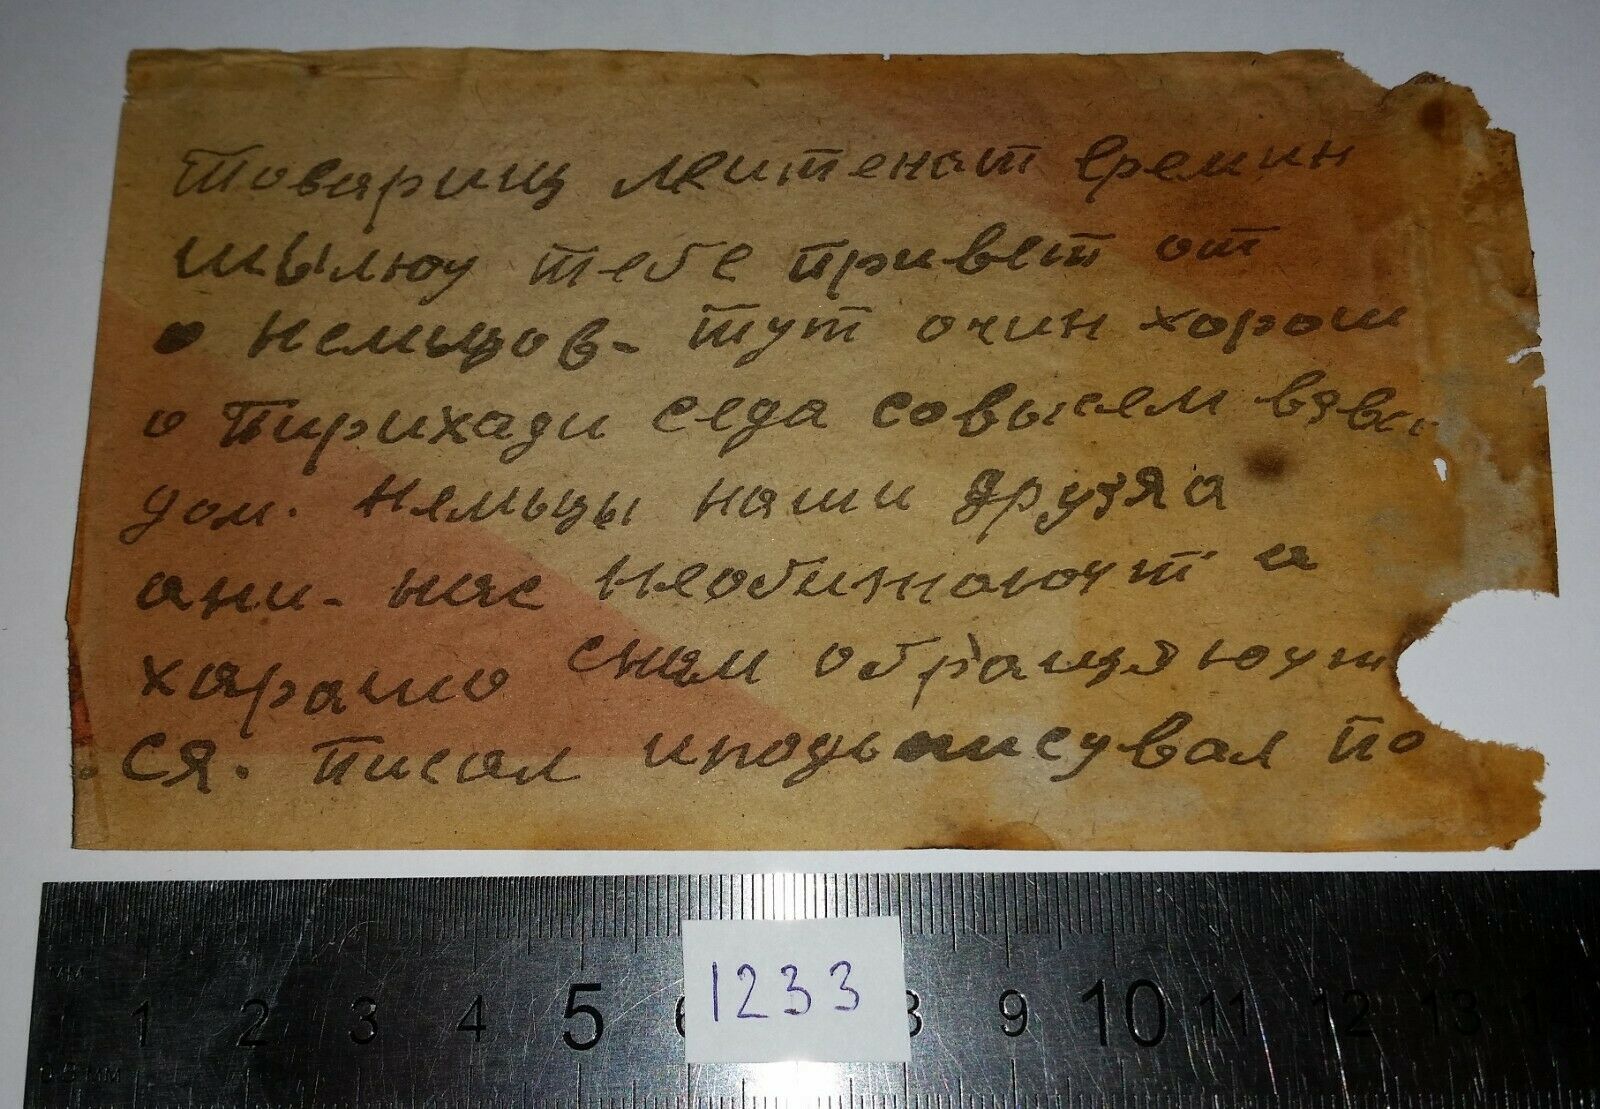 Товарищ леитенат Еремин
шылюу тебе привет от
немьцов- тут очин хорош
о пирихади седа совысем
дом. Немьцы наши друзя а
ани- нас необижаюут а
харашо снам обращяюут
ся. писал иподьписувал по
1233
мм
1 2 3 4 5 6 8 9 10 11 12 13
0.5 мм